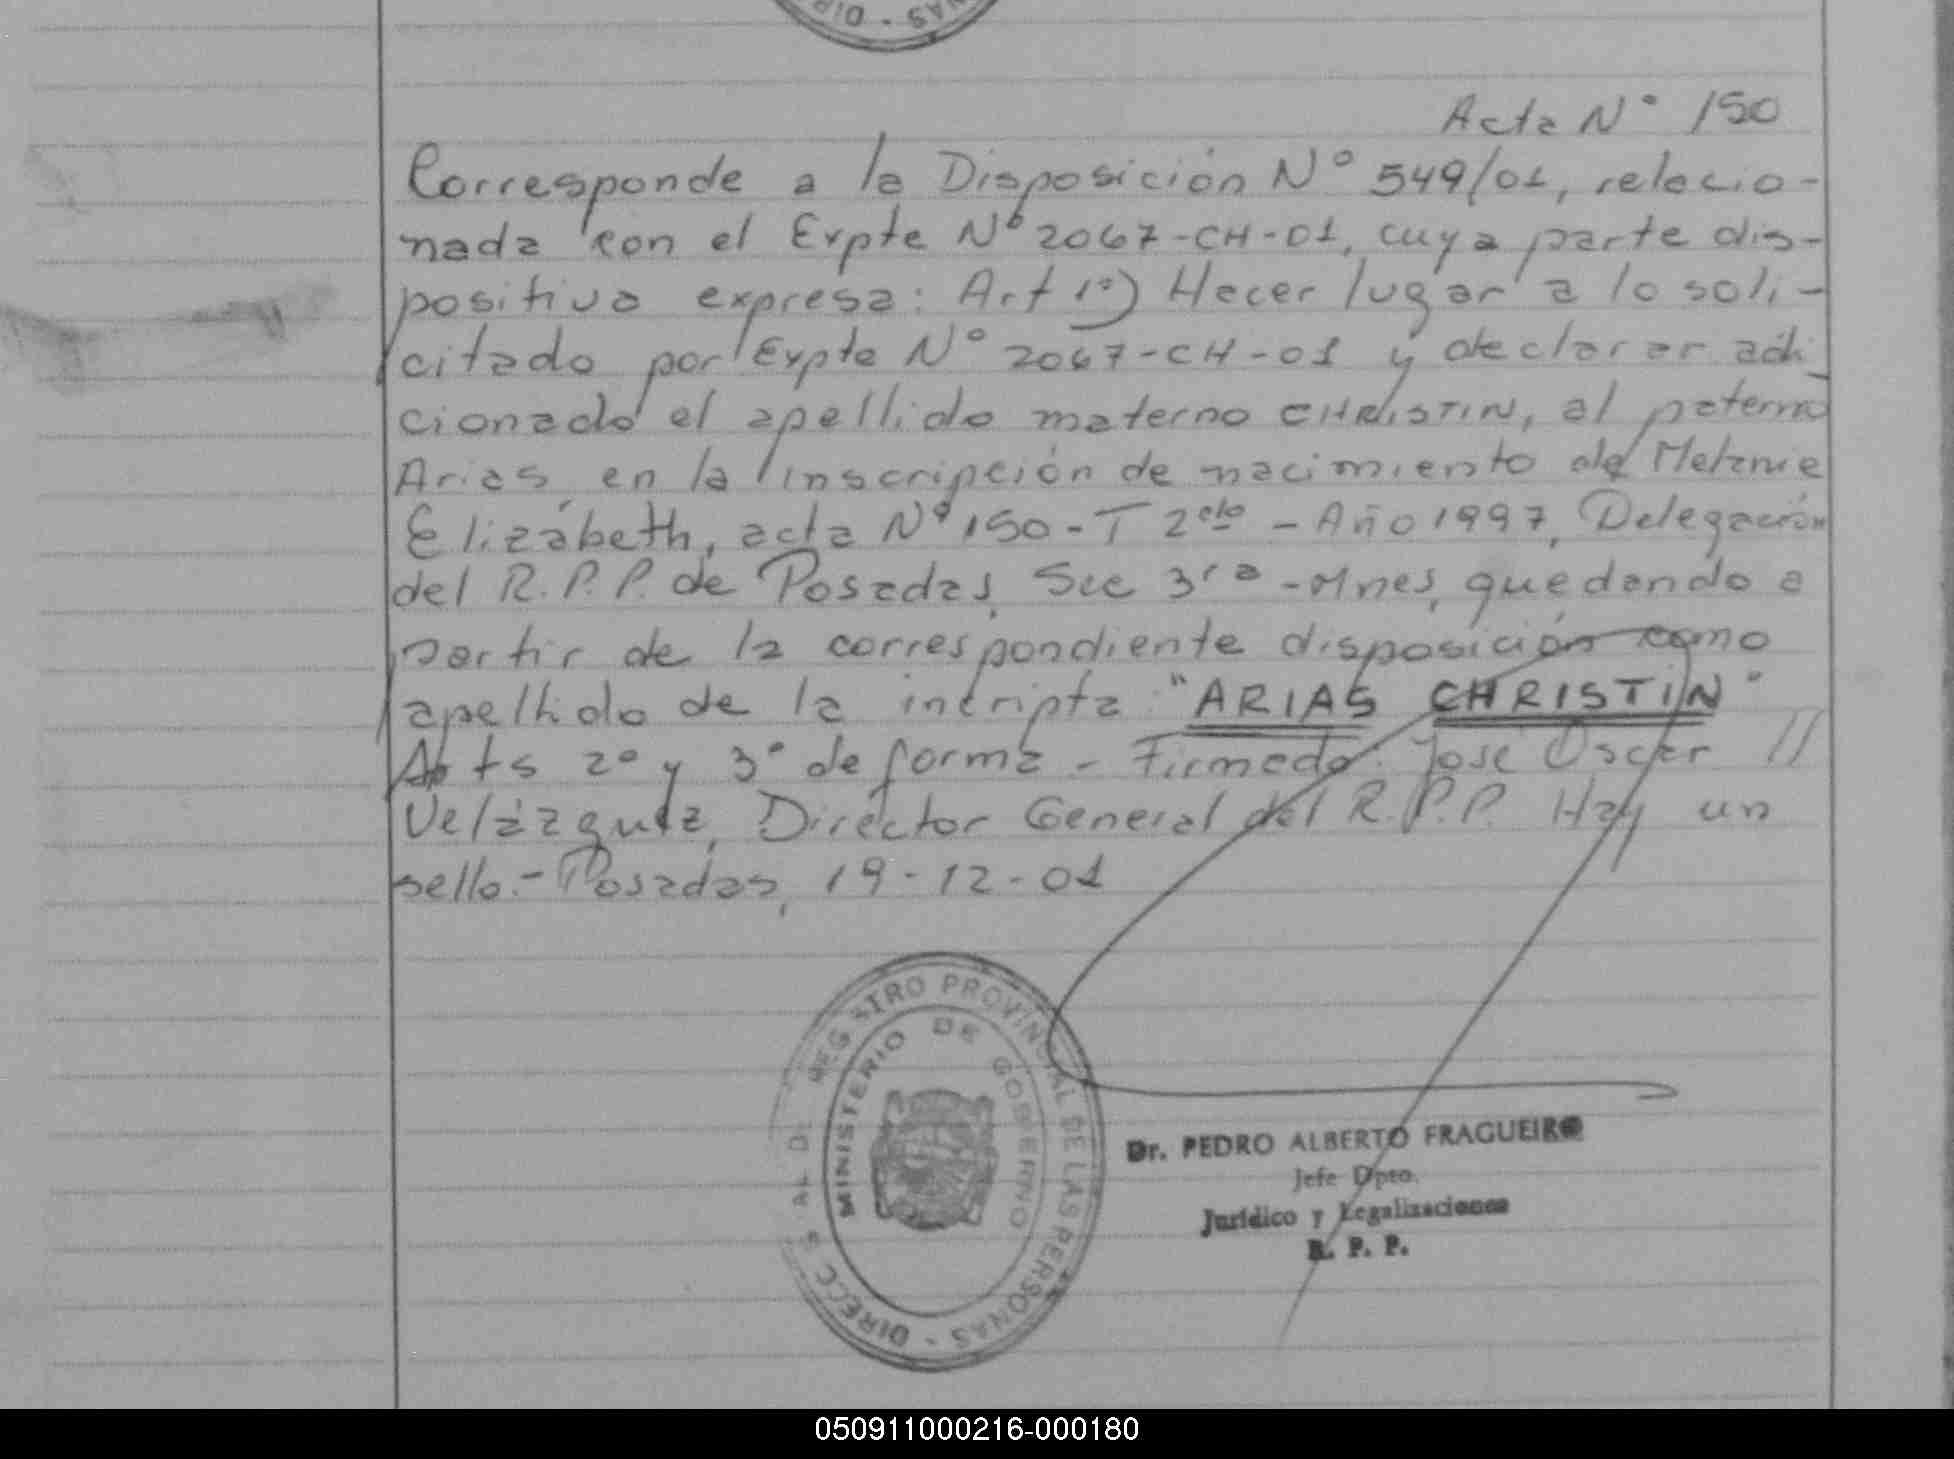 Acta N° 150
Corresponde a la Disposición N° 549/01, relacio-
nada con el Expte N° 2067-CH-01, cuya parte dis-
positiva expresa: Art 1°) Hacer lugar a lo soli-
citado por Expte N° 2067-CH-01 y declarar adi-
cionado el apellido materno CHRISTIN, al paterno
Arias en la inscripción de nacimiento de Melanie
Elizábeth, acta N° 150 - T 2cdo - Año 1997, Delegación
del R.P.P. de Posadas, Sec 3ra - Mnes, quedando a
partir de la correspondiente disposición como
apellido de la incripta "ARIAS CHRISTIN"
Arts 2° y 3° de forma - Firmado: José Oscar //
Velázquez, Director General del R.P.P. Hay un
sello.- Posadas, 19-12-01
REGISTRO PROVINCIAL DE LAS PERSONAS - DIRECC
MINISTERIO DE GOBIERNO
Dr. PEDRO ALBERTO FRAGUEIRO
Jefe Dpto.
Jurídico y Legalizaciones
R. P. P.
050911000216-000180